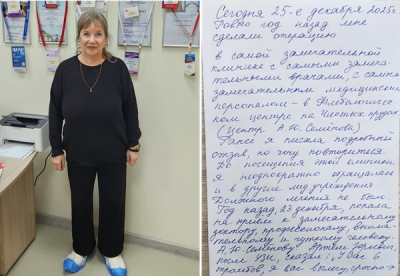 Сегодня 25-е декабря 2025г.
Ровно год назад мне
сделали операцию
в самой замечательной
клинике с самыми замеча-
тельными врачами, с самым
замечательным медицинским
персоналом – в Флебологичес-
ком центре на Чистых прудах
(Центр А.Ю. Семёнова)
Ранее я писала подробный
отзыв, но хочу повториться.
До посещения этой клиники,
я неоднократно обращалась
и в другие мед учреждения
Должного лечения не было.
Год назад, 23 декабря, попала
на приём к замечательному
доктору, профессионалу, внима-
тельному и чуткому человеку
А.Ю. Семёнову. Артём Юрьевич,
после УЗИ, сказал: „У Вас 6
тромбов, я Вас кладу срочно